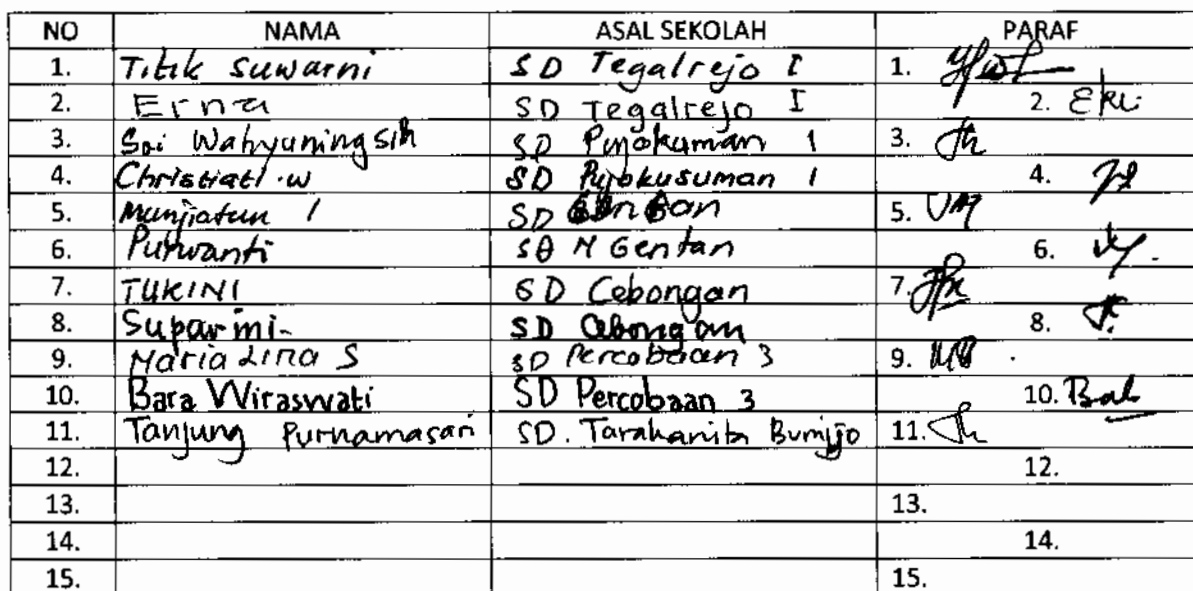 NO NAMA ASAL SEKOLAH PARAF
1. Titik Suwarni SD Tegalrejo I 1.
2. Erna SD Tegalrejo I 2. Eki
3. Sri Wahyuningsih SD Pujokuman 1 3.
4. Christiati .w SD Pujokusuman 1 4.
5. Munjiatun 1 SD 5.
6. Purwanti SD N Gentan 6.
7. TUKINI SD Cebongan 7.
8. Suparmi- SD Cebongan 8.
9. Maria Lina S SD Percobaan 3 9.
10. Bara Wiraswati SD Percobaan 3 10. Bal
11. Tanjung Purnamasari SD. Tarakanita Bumijo 11.
12. 12.
13. 13.
14. 14.
15. 15.